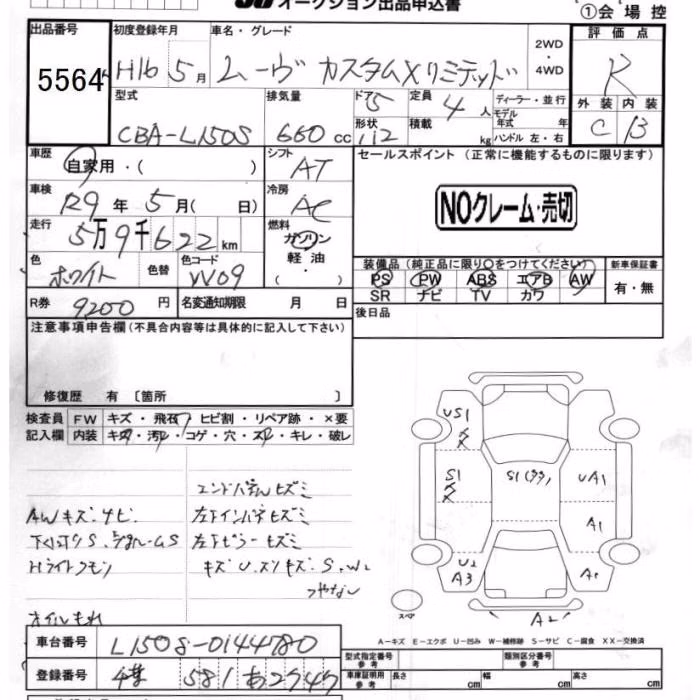 オークション出品申込書
①会場控
出品番号 初度登録年月 車名・グレード 2WD・4WD 評価点
5564 H16 5月 ムーヴ カスタムXリミテッド R
型式 排気量 ドア 5 定員 4人 ディーラー・並行 外装 内装
CBA-L150S 660cc 形状 積載 kg モデル年式 年 ハンドル 左・右 C B
車歴 自家用・( ) シフト AT セールスポイント (正常に機能するものに限ります)
車検 R9年5月( 日) 冷房 AC NOクレーム・売切
走行 5万9千622km 燃料 ガソリン
色 ホワイト 色替 色コード W09 軽油・( ) 装備品(純正品に限り○をつけてください) 新車保証書
PS PW ABS エアB AW 有・無
R券 9200円 名変通知期限 月 日 SR ナビ TV カワ
注意事項申告欄(不具合内容等は具体的に記入して下さい) 後日品
修復歴 有 〔箇所 〕
検査員 FW キズ・飛石・ヒビ割・リペア跡・×要
記入欄 内装 キズ・汚レ・コゲ・穴・スレ・キレ・破レ
US1
S1 S1 UA1
A1
U2
A3 A1
スペア
A2
エンドパネルヒズミ
AWキズ、サビ 左下インパネヒズミ
左下ピラーヒズミ
Hライトクモリ
オイルもれ
A-キズ E-エクボ U-凹み W-補修跡 S-サビ C-腐食 XX-交換済
車台番号 L150S-0144780 型式指定番号 参考 類別区分番号 参考
登録番号 581 あ2747 車庫証明用 参考 長さ cm 幅 cm 高さ cm